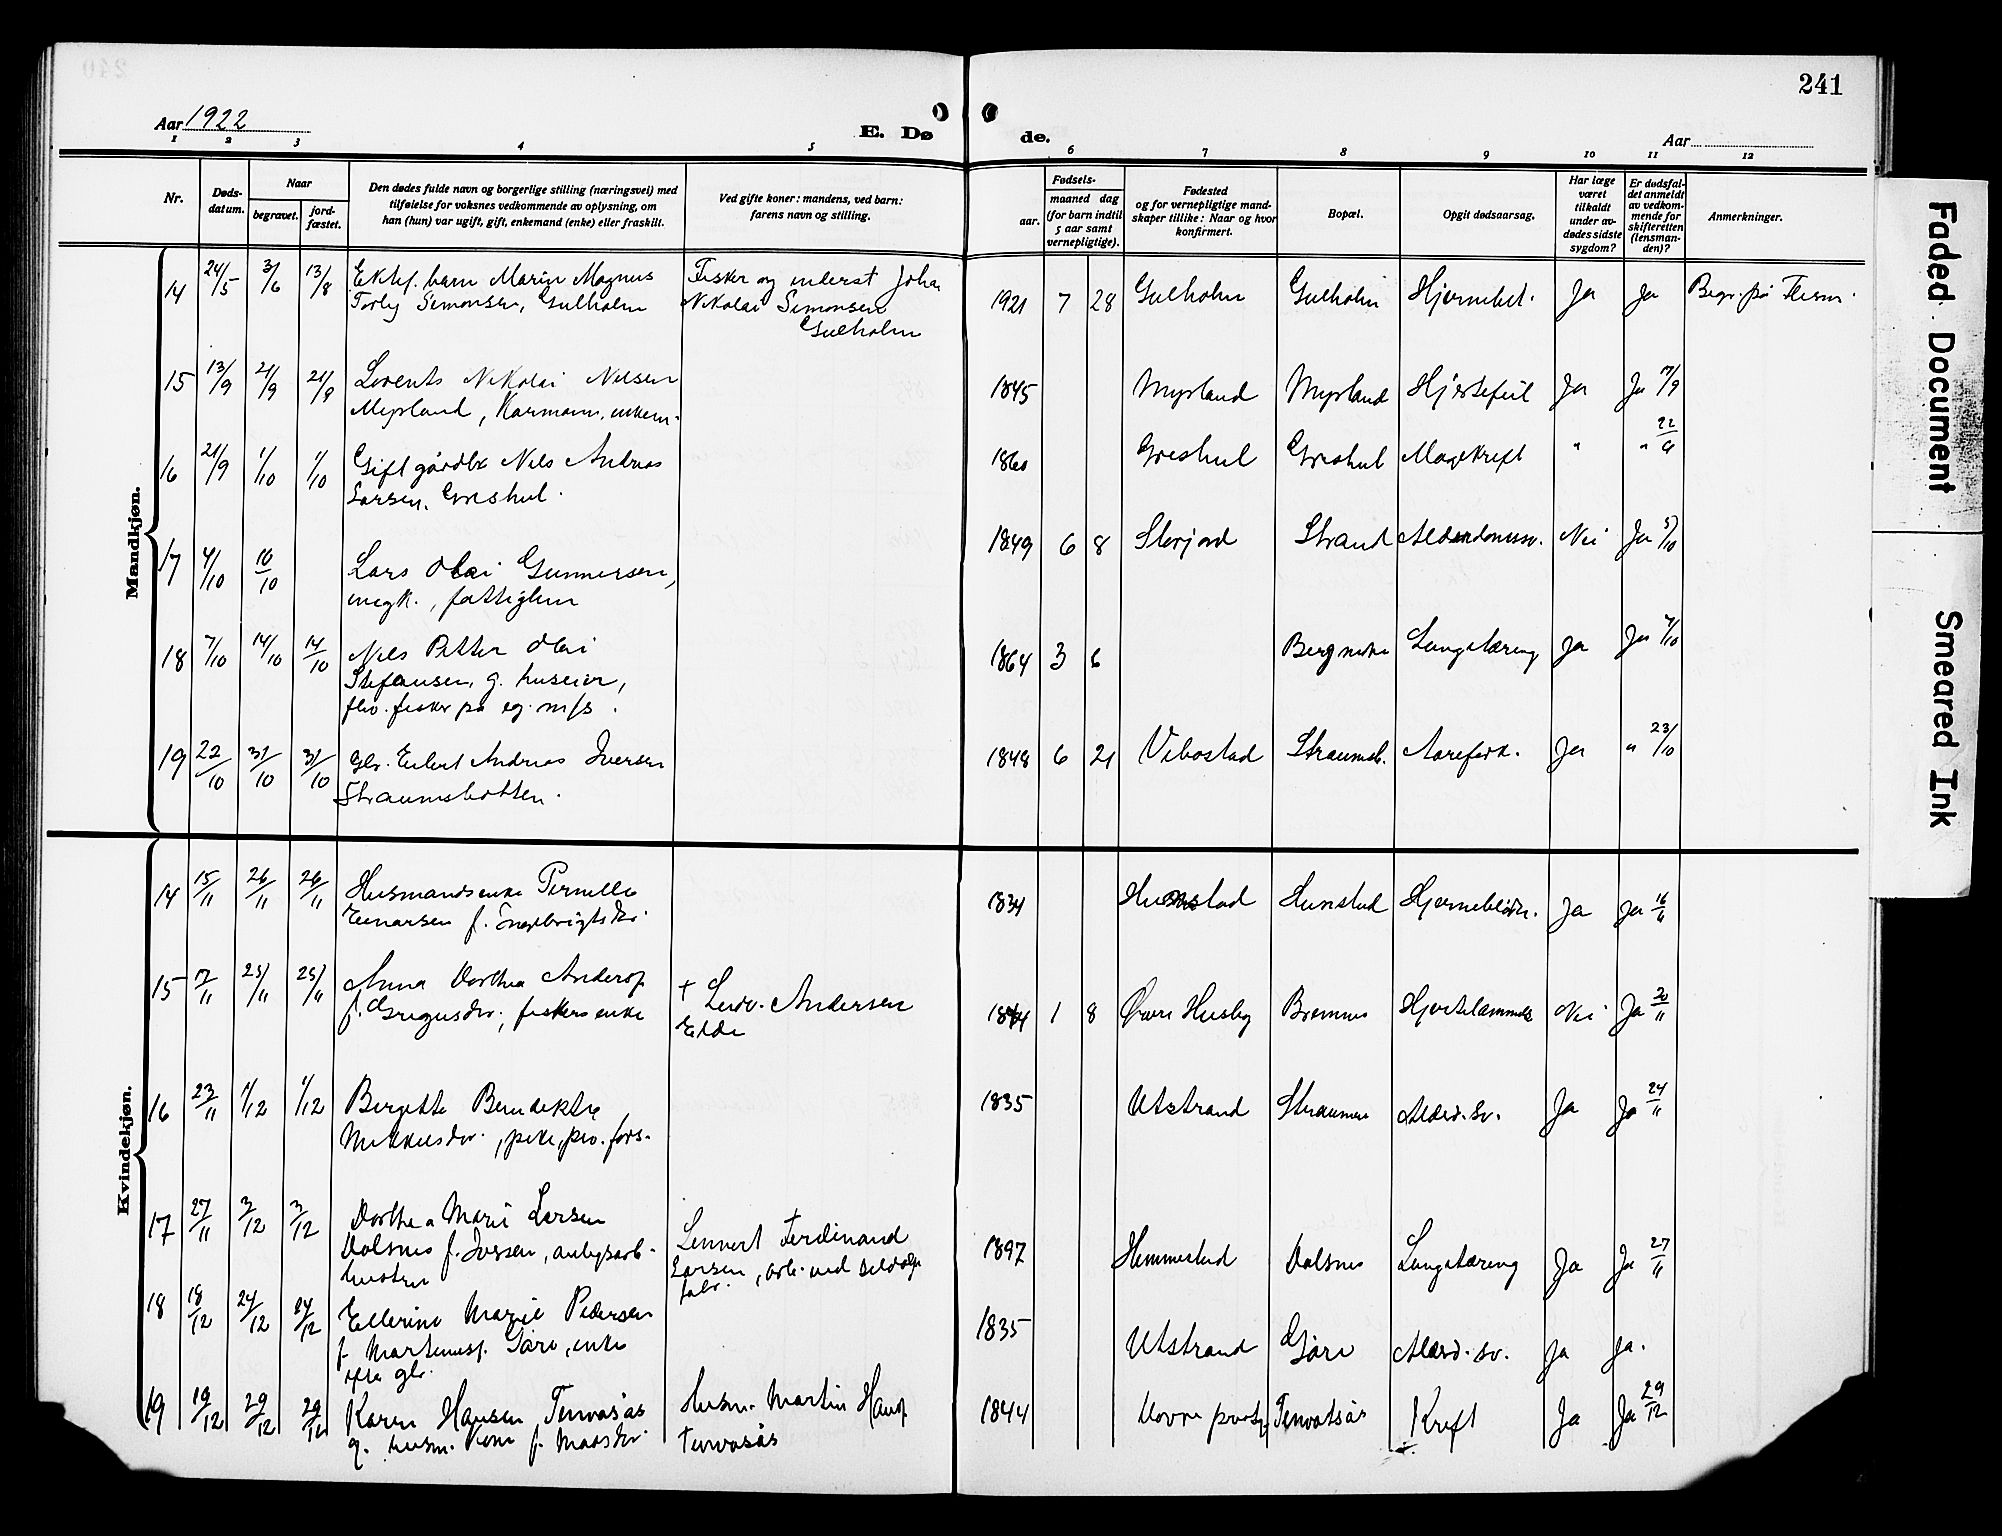 241
Aar 1922
E. Døde.
Aar
1 2 3 4 5 6 7 8 9 10 11 12
Nr.
Døds-
datum.
Naar
begravet.
jord-
fæstet.
Den dødes fulde navn og borgerlige stilling (næringsvei) med
tilføielse for voksnes vedkommende av oplysning, om
han (hun) var ugift, gift, enkemand (enke) eller fraskilt.
Ved gifte koner: mandens, ved barn:
farens navn og stilling.
Fødsels-
aar.
maaned dag
(for barn indtil
5 aar samt
vernepligtige).
Fødested
og for vernepligtige mand-
skaper tillike: Naar og hvor
konfirmert.
Bopæl.
Opgit dødsaarsag.
Har læge
været
tilkaldt
under av-
dødes sidste
sygdom?
Er dødsfal-
det anmeldt
av vedkom-
mende for
skifteretten
(lensman-
den)?
Anmerkninger.
Mandkjøn.
14 24/5 3/6 13/8 Ektef. barn Marin Magnus Fisker og inderst Johan 1921 7 28 Gulholm Gulholm Ja Ja Begr. på
Torly Simonsen, Gulholm Nikolai Simonsen
Gulholm
15 13/9 21/9 21/9 Lorents Nikolai Nilsen 1845 Myrland Myrland Hjertefeil Ja Ja 17/9
Myrland, Kaarmann, enkem.
16 21/9 1/10 1/10 Gift gårdbr Nils Andreas 1860 Greshul Greshul Mavekreft " " 22/9
Larsen, Greshul.
17 4/10 10/10 Lars Olai Gunnersen, 1849 6 8 Storjord Strand Alderdomssv. Nei Ja 5/10
ungk., fattiglem
18 7/10 14/10 14/10 Nils Petter Olai 1864 3 6 Lungetæring Ja Ja 7/10
Stefansen, g. huseier,
fisker på eg. m/s.
19 22/10 31/10 31/10 Gbr. Eilert Andreas Iversen 1848 6 21 Vibostad Straumsb. Aarefork. Ja " 23/10
Straumsbotten.
Kvindekjøn.
14 15/11 26/11 26/11 Husmandsenke Pernille 1834 Hunstad Hunstad Ja Ja 16/11
Einarsen f. Ingebrigtsdtr.
15 17/11 25/11 25/11 Anna Dorthea Anders. + Ludv. Andersen 1 8 Øvre Husby Bremnes Hjertelammelse Nei Ja 20/11
f. Gregusdtr., fiskers enke Elde
16 23/11 1/12 1/12 Bergette Bendekte 1835 Utstrand Straumen Alderd. sv. Ja Ja 24/11
Mikkelsdtr., pike, priv. fors.
17 27/11 3/12 3/12 Dorthea Marie Larsen Lennert Ferdinand 1897 Hemmestad Dalsnes Lungetæring Ja Ja 27/11
Dalsnes f. Jossen, anlegsarb. Larsen, arb. ved sildolje
hustru fabr.
18 18/12 24/12 24/12 Ellerine Marie Pedersen 1835 Utstrand Gåre Alderd. sv. Ja Ja.
f. Martinusd. Gåre, enke
efter gbr.
19 19/12 29/12 29/12 Karen Hansen Tenvasås Husm. Martin Hans. 1844 Dovre prestg. Tenvatsås Kreft Ja Ja 29/12
g. husm. kone f. Tenvasås
Faded Document
Smeared Ink